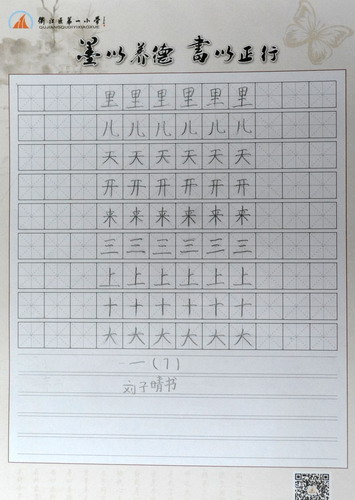 衢江区第一小学
QUJIANGQUDIYIXIAOXUE
墨以养德 書以正行
里里里里里里
儿儿儿儿儿儿
天天天天天天
开开开开开开
来来来来来来
三三三三三三
上上上上上上
十十十十十十
大大大大大大
一(7)
刘子晴书